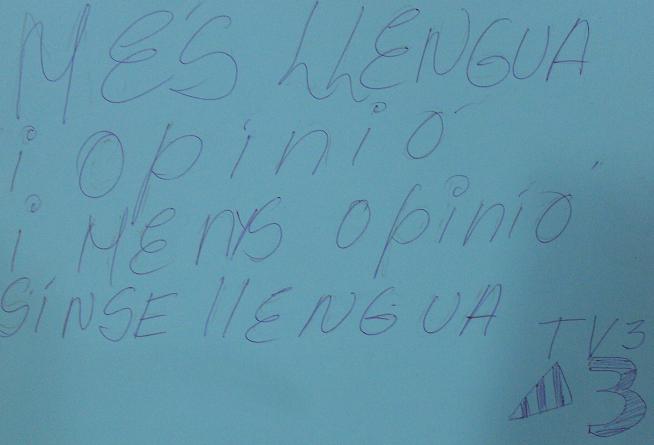 MÉS LLENGUA
i opinió
i MENYS opinió
SINSE llENGUA
TV3
3